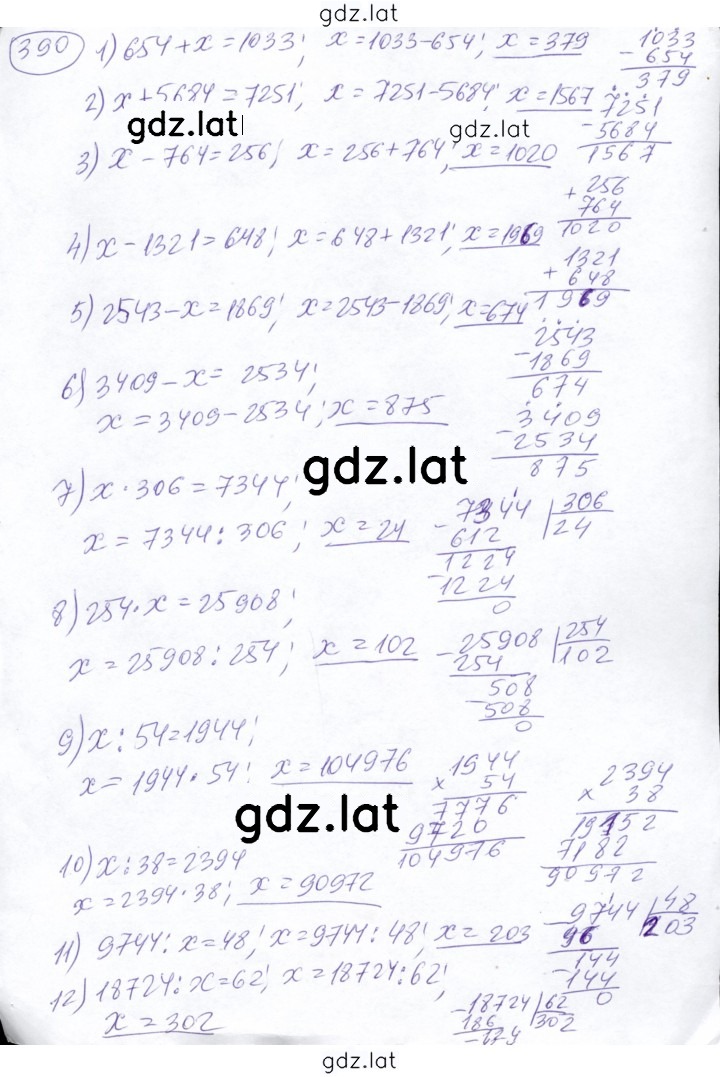 gdz.lat
390 1) 654 + x = 1033; x = 1033 - 654; x = 379
1033
- 654
379
2) x + 5684 = 7251; x = 7251 - 5684; x = 1567
7251
- 5684
1567
gdz.lat
gdz.lat
3) x - 764 = 256; x = 256 + 764; x = 1020
+ 256
764
1020
4) x - 1321 = 648; x = 648 + 1321; x = 1969
1321
+ 648
1969
5) 2543 - x = 1869; x = 2543 - 1869; x = 674
2543
- 1869
674
6) 3409 - x = 2534;
x = 3409 - 2534; x = 875
3409
- 2534
875
gdz.lat
7) x · 306 = 7344;
x = 7344 : 306; x = 24
- 7344 306
612 24
1224
- 1224
0
8) 254 · x = 25908;
x = 25908 : 254; x = 102
- 25908 254
254 102
508
- 508
0
9) x : 54 = 1944;
x = 1944 · 54; x = 104976
1944
x 54
7776
9720
104976
gdz.lat
2394
x 38
19152
7182
90972
10) x : 38 = 2394
x = 2394 · 38; x = 90972
11) 9744 : x = 48; x = 9744 : 48; x = 203
- 9744 48
96 203
144
- 144
0
12) 18724 : x = 62; x = 18724 : 62;
x = 302
- 18724 62
186 302
gdz.lat